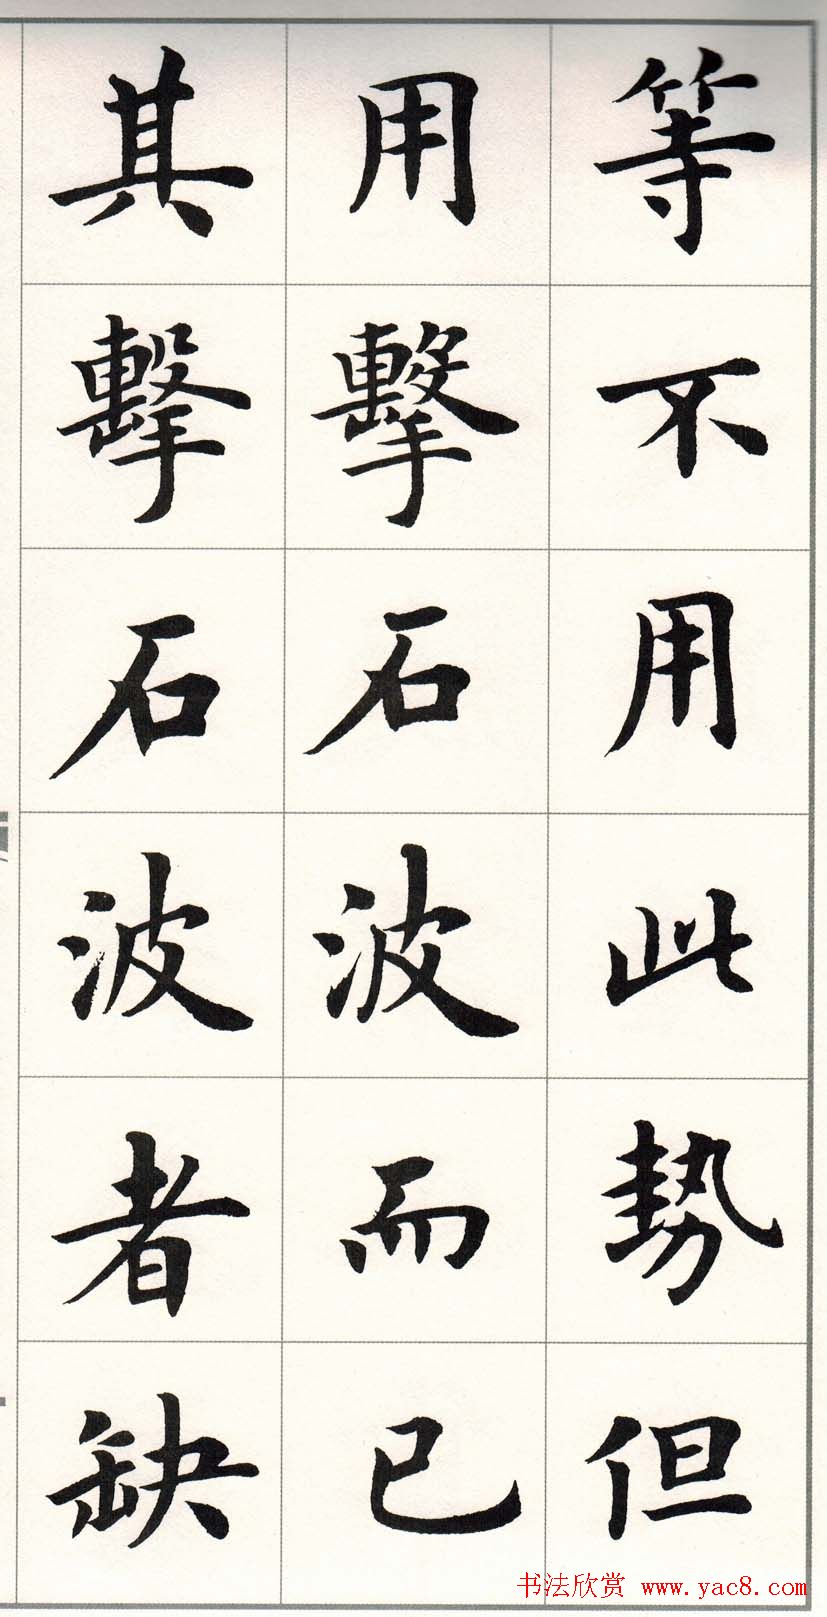 等不用此勢但
用擊石波而已
其擊石波者缺
书法欣赏 www.yac8.com